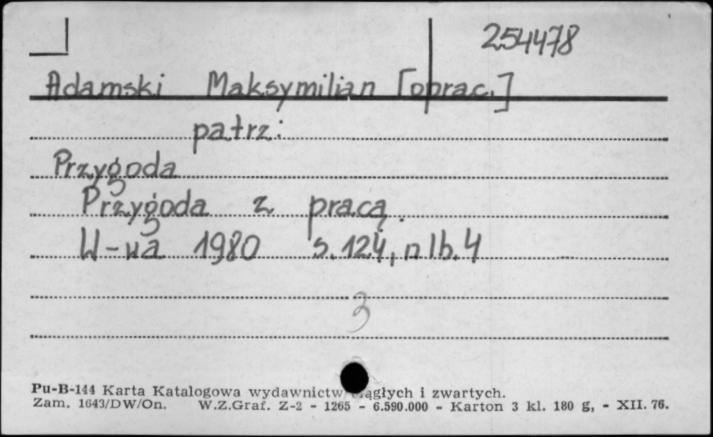 254478
Adamski Maksymilian [oprac.]
patrz:
Przygoda
Przygoda z pracą.
W-wa 1980 s. 124, nlb. 4
3
Pu-B-144 Karta Katalogowa wydawnictw ciągłych i zwartych.
Zam. 1643/DW/On. W.Z.Graf. Z-2 - 1265 - 6.590.000 - Karton 3 kl. 180 g, - XII. 76.